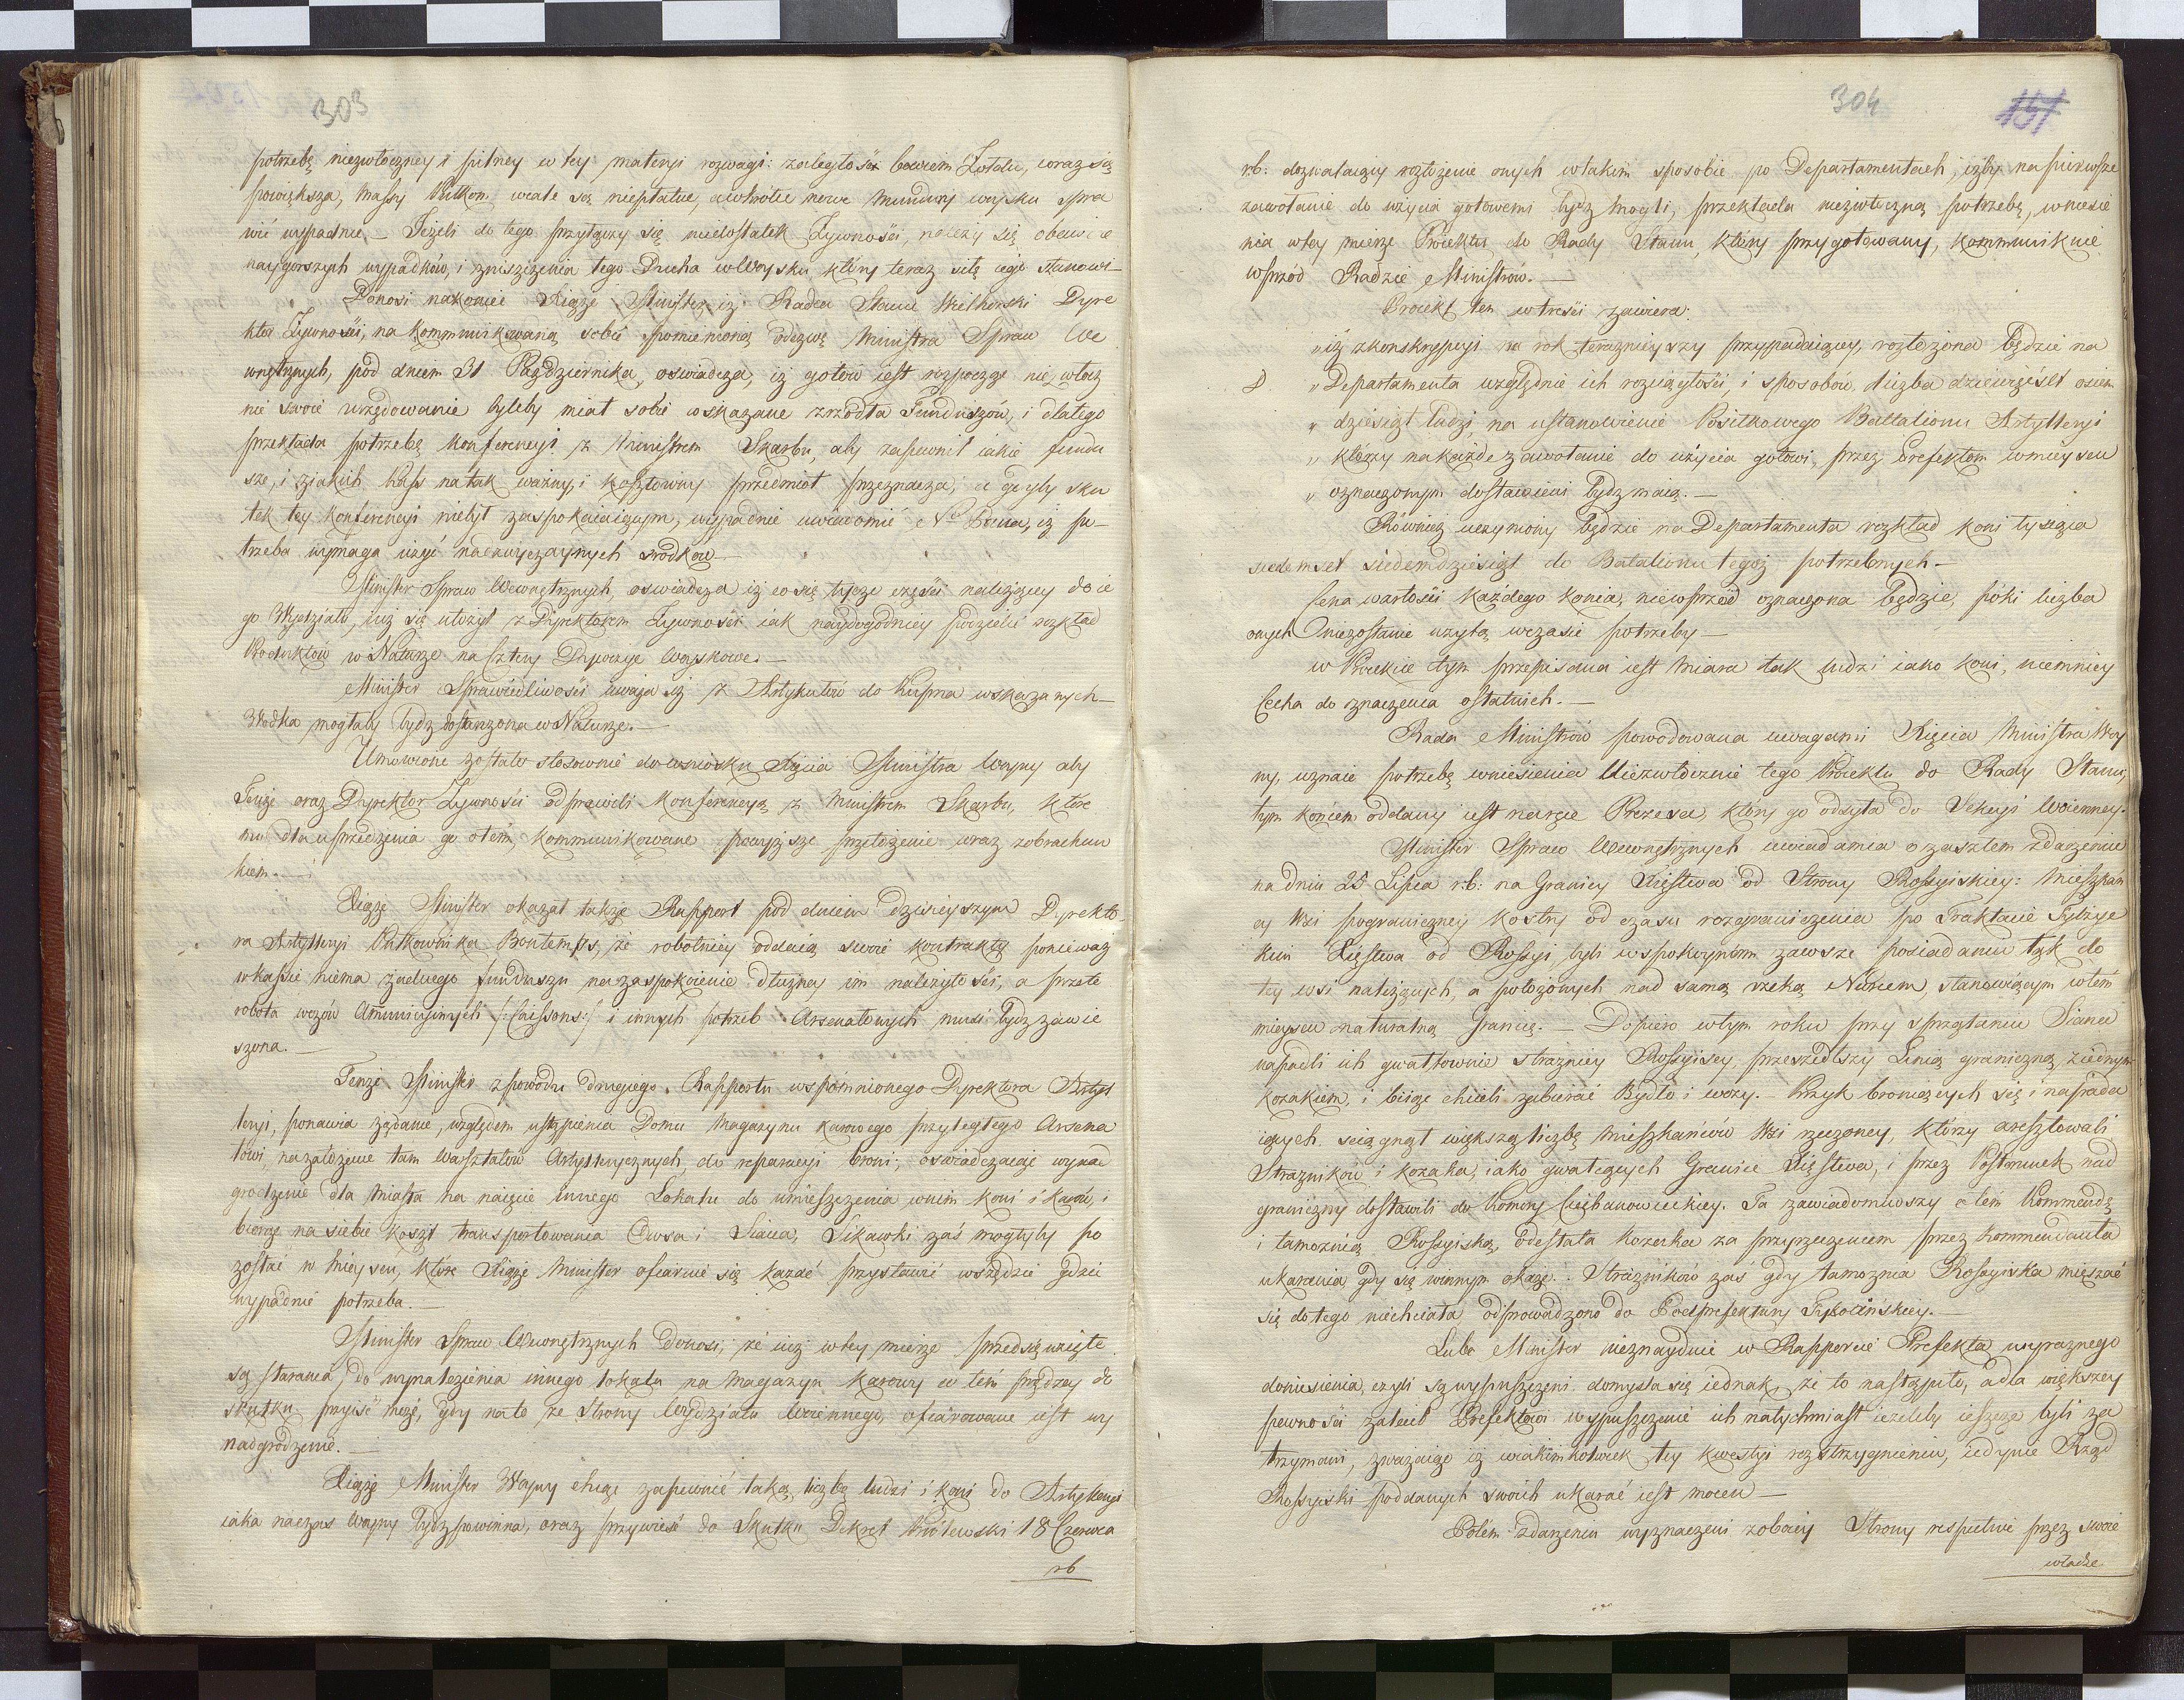 303
potrzebę niezwłoczney i pilney w tey materyi rozwagi: zaległość bowiem Żołdu, coraz się
powiększa, Massy Pułkow. wcale są niepłatne, a wkrótce nowe Mundury woysku spra
wić wypadnie. — Jeżeli do tego przyłączy się niedostatek Żywności, należy się obawiać
naygorszych wypadków, i zniszczenia tego Ducha w Woysku który teraz siłę iego stanowi —
Donosi nakoniec Xiążę Minister, iż Radca Stanu Wielhorski Dyre
ktor Żywności, na kommunikowaną sobie spomnioną odezwę Ministra Spraw We
wnętrznych, pod dniem 31 Października, oświadcza, iż gotów iest rozpocząć niezwłocz
nie swoie urzędowanie byleby miał sobie wskazane zrzódła Funduszów, i dlatego
przekłada potrzebę konferencyi z Ministrem Skarbu, aby zapewnił iakie fundu
sze, i z iakich Kass na tak ważny, i kosztowny przedmiot przeznacza; a gdyby sku
tek tey konferencyi niebył zaspokaiaiącym, wypadnie uwiadomić Nº Pana, iż po-
trzeba wymaga użyć nadzwyczaynych srodkow —
Minister Spraw Wewnętrznych, oswiadcza iż co się tycze części należącey do ie
go Wydziału, iuż się ułożył z Dyrektorem Żywności iak naydogodniey podzielić rozkład
Produktów w Naturze na cztery Dywizye Woyskowe. —
Minister Sprawiedliwości uważa iż z Artykułów do Kupna wskazanych —
Wodka mogłaby bydz dostarczona w Naturze. —
Umówione zostało stosownie do wniosku Xięcia Ministra Woyny aby
Tenże oraz Dyrektor Żywności odprawili konferencyą z Ministrem Skarbu, któ
mu dla uprzedzenia go o tém, kommunikowane powyższe przełożenie wraz z obrachun
kiem. —
Xiążę Minister okazał także Rapport pod dniem dzisieyszym Dyrekto
ra Artylleryi Pułkownika Bontemps, że robotnicy oddaią swoie kontrakty ponieważ
w kassie niema żadnego funduszu na zaspokoienie dłużney im należytości, a przeto
robota wozów Ammunicyinych /:Caissons:/ i innych potrzeb Arsenałowych musi bydz zawie
szona. —
Tenże Minister z powodu drugiego Rapportu wspomnionego Dyrektora Artyl
leryi, ponawia żądanie, względem ustąpienia Domu Magazynu karowego przyległego Arsena
łowi, na założenie tam Warsztatów Artylleryicznych do reparacyi broni; oświadczaiąc wynad
grodzenie dla Miasta na naięcie innego Lokalu do umieszczenia w nim koni i karów, i
bierze na siebie koszt transportowania Owsa i Siana, Sikawki zaś mogłyby po
zostać w Mieyscu, które Xiążę Minister ofiaruie się kazać przystawić wszędzie gdzie
wypadnie potrzeba. —
Minister Spraw Wewnętrznych donosi, że iuż w tey mierze przedsięwzięte
są starania do wynalezienia innego lokalu na Magazyn Karowy co tem prędzey do
skutku przyiść może, gdy na to ze strony Wydziału Woiennego, ofiarowane iest wy
nadgrodzenie. —
Xiążę Minister Woyny chcąc zapewnić taką liczbę ludzi i koni do Artylleryi
iaka na czas Woyny bydz powinna, oraz przywieść do Skutku Dekret Królewski 18 Czerwca
rb
304
151
r.b. dozwalaiący rozłożenie onych w takim sposobie po Departamentach, iżby na pierwsze
zawołanie do użycia gotowemi bydz mogli, przekłada niezwłoczną potrzebę, wniesie
nia w tey mierze Proiektu do Rady Stanu, który przygotowany, kommunikuie
wprzód Radzie Ministrów. —
Proiekt ten w treści zawiera:
„ iż z konskrypcyi na rok teraznieyszy przypadaiącey, rozłożona będzie na
„ Departamenta względnie ich rozciągłości, i sposobów, liczba dziewięćset osiem
„ dziesiąt ludzi, na ustanowienie Posiłkowego Battalionu Artylleryi
„ którzy na każde zawołanie do użycia gotowi, przez Prefektow w mieyscu
„ oznaczonym dostawieni bydz maią. —
Równiez uczyniony będzie na Departamenta rozkład koni tysiąca
siedemset siedemdziesiąt do Batalionu tegoż potrzebnych —
Cena wartości każdego konia, niewprzód oznaczona będzie, póki liczba
onych niezostanie użytą w czasie potrzeby —
w Proiekcie tym przepisana iest Miara tak ludzi iako koni, niemniey
Cecha do znaczenia ostatnich. —
Rada Ministrów powodowana uwagami Xięcia Ministra Woy
ny, uznaie potrzebę wniesienia Niezwłócznie tego Proiektu do Rady Stanu,
tym końcem oddany iest na ręce Prezesa, który go odsyła do Sekcyi Woienney.
Minister Spraw Wewnętrznych uwiadamia o zaszłem zdarzeniu
na dniu 25 Lipca r.b: na Granicy Xięstwa od Strony Rossyiskiey: Mieszkań
cy Wsi pograniczney Kostry od czasu rozgraniczenia po Traktacie Tylżyc
kim Xięstwa od Rossyi, byli w spokoynem zawsze posiadaniu łąk do
tey wsi należących, a położonych nad samą rzeką Nurcem, stanowiącym w tém
mieyscu naturalną Granicę. — Dopiero w tym roku przy sprzątaniu Siana
napadli ich gwałtownie strażnicy Rossyiscy, przeszedłszy Linią graniczną, z iednym
kozakiem, i biiąc chcieli zabierać Bydło i wozy. — Krzyk broniących się i napada
iących ściągnął większą liczbę Mieszkańców Wsi rzeczoney, którzy aresztowali
Strażników i kozaka, iako gwałcących Granice Xięstwa, i przez Posterunek nad
graniczny dostawili do Komory Ciechanowieckiey. Ta zawiadomiwszy o tém Kommendę
i tamożnią Rossyiską, odesłała kozaka za przyrzeczeniem przez Kommendanta
ukarania gdy się winnym okaże. Strażników zaś gdy tamożnia Rossyiska mięszać
się do tego niechciała, odprowadzono do Podprefektury Tykocińskiey.
Lubo Minister nieznayduie w Rapporcie Prefekta wyraznego
doniesienia, czyli są wypuszczeni, domyśla się iednak, że to nastąpiło, a dla większey
pewności zalecił Prefektowi wypuszczenie ich natychmiast ieżeliby ieszcze byli za
trzymani, zważaiąc iż w iakimkolwiek tey kwestyi rozstrzygnieniu, iedynie Rząd
Rossyiski poddanych swoich ukarać iest mocen —
Po tém zdarzeniu wyznaczeni z obóey Strony respective przez swoie
władze